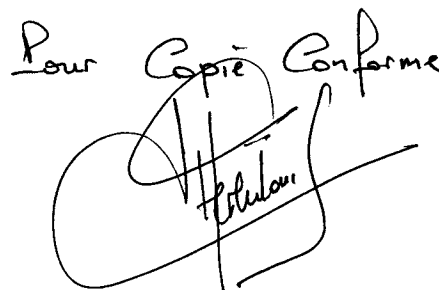 Pour Copie Conforme